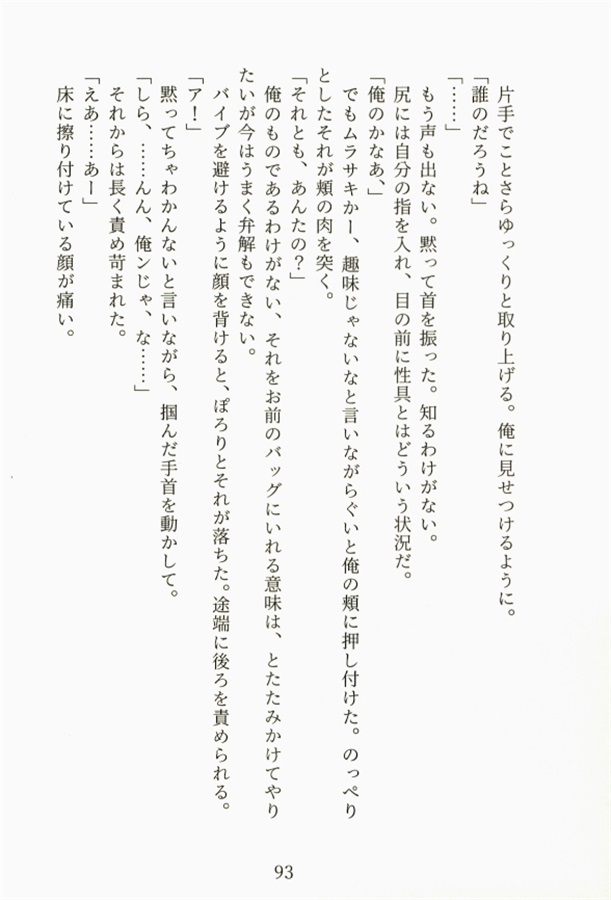 片手でことさらゆっくりと取り上げる。俺に見せつけるように。
「誰のだろうね」
「……」
もう声も出ない。黙って首を振った。知るわけがない。
尻には自分の指を入れ、目の前に性具とはどういう状況だ。
「俺のかなあ、」
でもムラサキかー、趣味じゃないなと言いながらぐいと俺の頬に押し付けた。のっぺり
としたそれが頬の肉を突く。
「それとも、あんたの？」
俺のものであるわけがない、それをお前のバッグにいれる意味は、とたたみかけてやり
たいが今はうまく弁解もできない。
バイブを避けるように顔を背けると、ぽろりとそれが落ちた。途端に後ろを責められる。
「ア！」
黙ってちゃわかんないと言いながら、掴んだ手首を動かして。
「しら、……んん、俺ンじゃ、な……」
それからは長く責め苛まれた。
「えあ……あー」
床に擦り付けている顔が痛い。
93